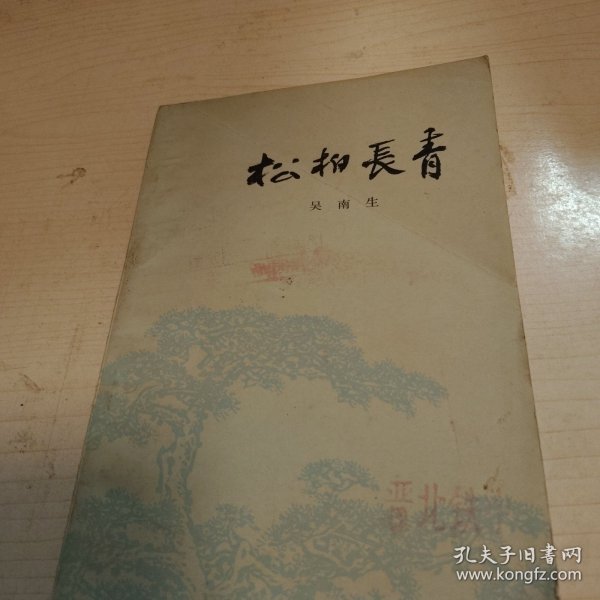 松柏長青
吴南生
晋北铁
孔夫子旧书网
www.kongfz.com